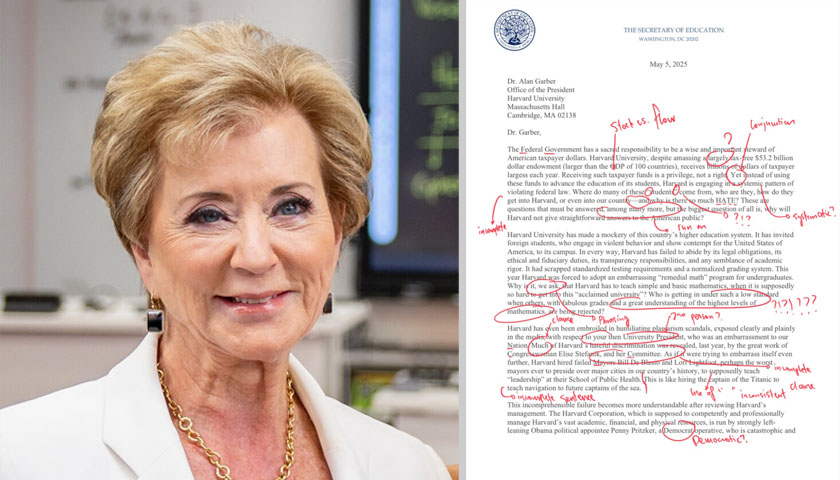 THE SECRETARY OF EDUCATION
WASHINGTON, DC 20202
May 5, 2025
Dr. Alan Garber
Office of the President
Harvard University
Massachusetts Hall
Cambridge, MA 02138
Stock vs. flow
Conjunction
Dr. Garber,
?
The Federal Government has a sacred responsibility to be a wise and important steward of
American taxpayer dollars. Harvard University, despite amassing a largely tax-free $53.2 billion
dollar endowment (larger than the GDP of 100 countries), receives billions of dollars of taxpayer
largess each year. Receiving such taxpayer funds is a privilege, not a right. Yet instead of using
these funds to advance the education of its students, Harvard is engaging in a systemic pattern of
violating federal law. Where do many of these students come from, who are they, how do they
get into Harvard, or even into our country—and why is there so much HATE? These are
questions that must be answered, among many more, but the biggest question of all is, why will
Harvard not give straightforward answers to the American public?
?!?
systematic?
incomplete
run on
Harvard University has made a mockery of this country's higher education system. It has invited
foreign students, who engage in violent behavior and show contempt for the United States of
America, to its campus. In every way, Harvard has failed to abide by its legal obligations, its
ethical and fiduciary duties, its transparency responsibilities, and any semblance of academic
rigor. It had scrapped standardized testing requirements and a normalized grading system. This
year Harvard was forced to adopt an embarrassing "remedial math" program for undergraduates.
Why is it, we ask, that Harvard has to teach simple and basic mathematics, when it is supposedly
so hard to get into this "acclaimed university"? Who is getting in under such a low standard
when others, with fabulous grades and a great understanding of the highest levels of
mathematics, are being rejected?
?!?!???
clause
Phrasing
2nd person?
Harvard has even been embroiled in humiliating plagiarism scandals, exposed clearly and plainly
in the media, with respect to your then University President, who was an embarrassment to our
Nation. Much of Harvard's hateful discrimination was revealed, last year, by the great work of
Congresswoman Elise Stefanik, and her Committee. As if it were trying to embarrass itself even
further, Harvard hired failed Mayors Bill De Blasio and Lori Lightfoot, perhaps the worst
mayors ever to preside over major cities in our country's history, to supposedly teach
"leadership" at their School of Public Health. This is like hiring the captain of the Titanic to
teach navigation to future captains of the sea.
incomplete
clause
incomplete sentence
use of " " inconsistent
This incomprehensible failure becomes more understandable after reviewing Harvard's
management. The Harvard Corporation, which is supposed to competently and professionally
manage Harvard's vast academic, financial, and physical resources, is run by strongly left-
leaning Obama political appointee Penny Pritzker, a Democrat operative, who is catastrophic and
Democratic?